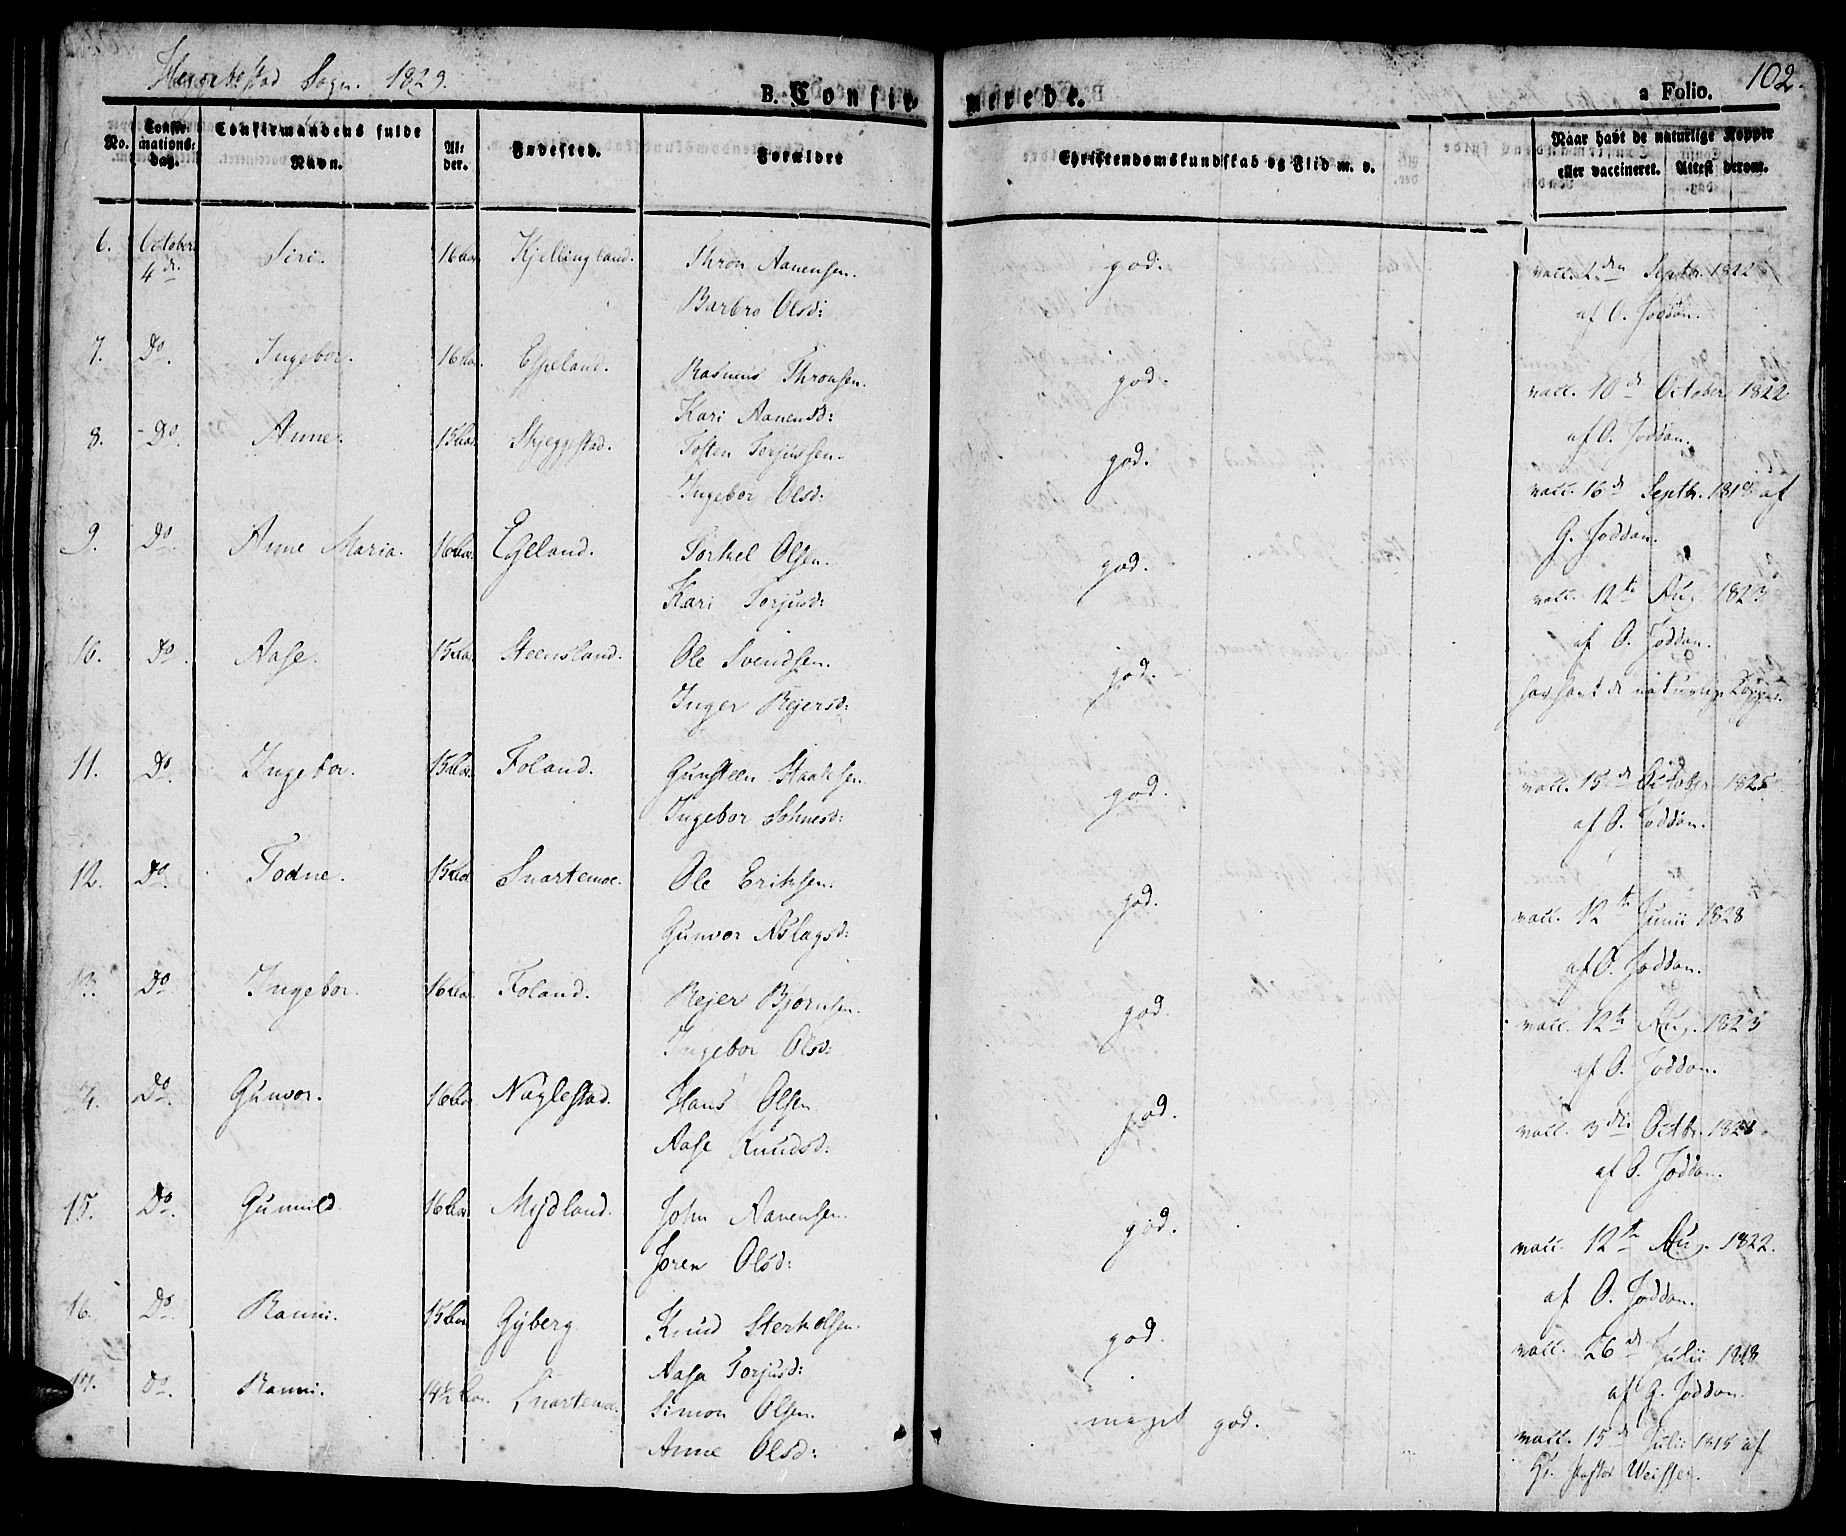 Sogn. 1829.
B. Confir
merede.
a Folio. 102.
No. Confir-mations-dag. Confirmandens fulde Navn. Al-der. Fødested. Forældre
Christendomskundskab og Flid m. v. Naar havt de naturlige Kopper eller vaccineret. Attest derom.
6. October 4de Siri. 16 Aar. Kjellingland. Thron Aanensen. god. vacc. 2den Septbr. 1822
Barbro Olsd: af O. Joddan.
7. Do. Ingebor. 16 Aar. Espeland. Rasmus Thronsen. god. vacc. 10de October 1822
Kari Aanensd: af O. Joddan.
8. Do. Anne. 15 Aar. Skjeggestad. Tosten Torjussen. god. vacc. 16de Septbr. af
Ingebor Olsd: G. Joddan.
9. Do. Anne Maria. 16 Aar. Egeland. Torkel Olsen. god. vacc. 12te Aug. 1823
Kari Torjusd: af O. Joddan.
10. Do. Aase. 15 Aar. Steensland. Ole Svendsen. god. har havt de naturlige Kopper.
Inger Rejersd:
11. Do. Ingebor. 15 Aar. Foland. Gunsteen Staalesen. god. vacc. 15de October
Ingebor af O. Joddan.
12. Do. Todne. 15 Aar. Snartemoe. Ole Eriksen. god. vacc. 12te Junii 1828
Gunvor Aslagsd: af O. Joddan.
13. Do. Ingebor. 16 Aar. Foland. Rejer Bjørnsen. god. vacc. 12te Aug. 1823
Ingebor Olsd: af O. Joddan.
Do. Gunvor. 16 Aar. Naglestad. Hans Olsen god. vacc. 3die Octbr.
Aase Knudsd: af O. Joddan.
15. Do. Gunnild. 16 Aar. Mydland. John Aanensen. god. vacc. 12te Aug. 1822.
Joren Olsd: af O. Joddan.
16. Do. Ranni. 15 Aar Gyberg Knud Sterkelsen. god. vacc. 26de Julii 1818
Aasa Torjusd: af G. Joddan.
17. Do. Ranni. 14½ Aar. Snartemoe. Simon Olsen. meget god. vacc. 15de Julii 1815 af
Anne Olsd: Hr. Pastor Weisser.